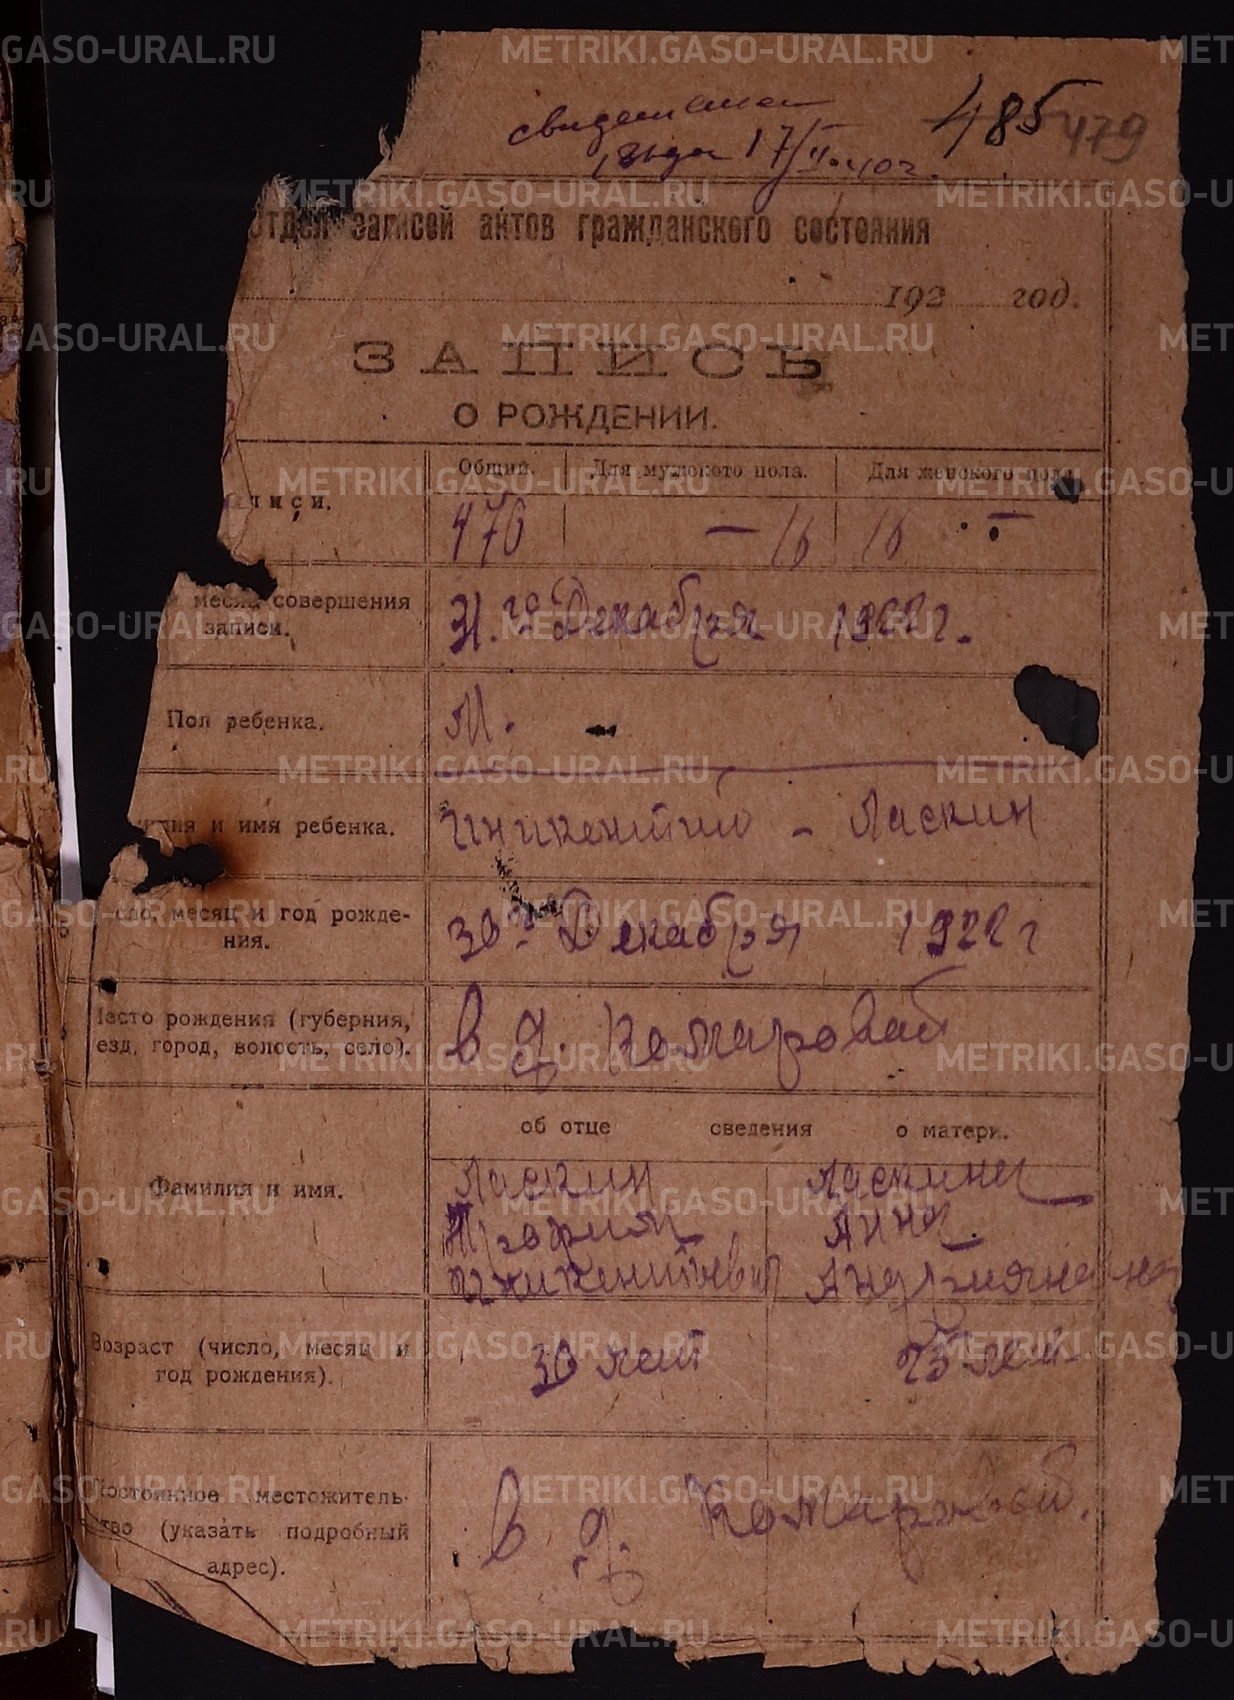 свидетел
выдан 17/II-40г.
485 479
отдел записей актов гражданского состояния
192 год.
ЗАПИСЬ
О РОЖДЕНИИ.
Общий. Для мужского пола. Для женского пола
писи.
476 — 16 16 —
месяц совершения
записи.
31.го Декабря 1922 г.
Пол ребенка.
М.
илия и имя ребенка.
Иникентий - Ласкин
сло, месяц и год рожде-
ния.
30го Декабря 1922 г
Место рождения (губерния,
езд, город, волость, село).
в д. Комаровой
об отце сведения о матери.
Фамилия и имя.
Ласкин Ласкина
Анна
Иникентьевич
Возраст (число, месяц и
год рождения).
30 лет 23 лет
Постоянное местожитель-
тво (указать подробный
адрес).
в д. Комаровой.
METRIKI.GASO-URAL.RU